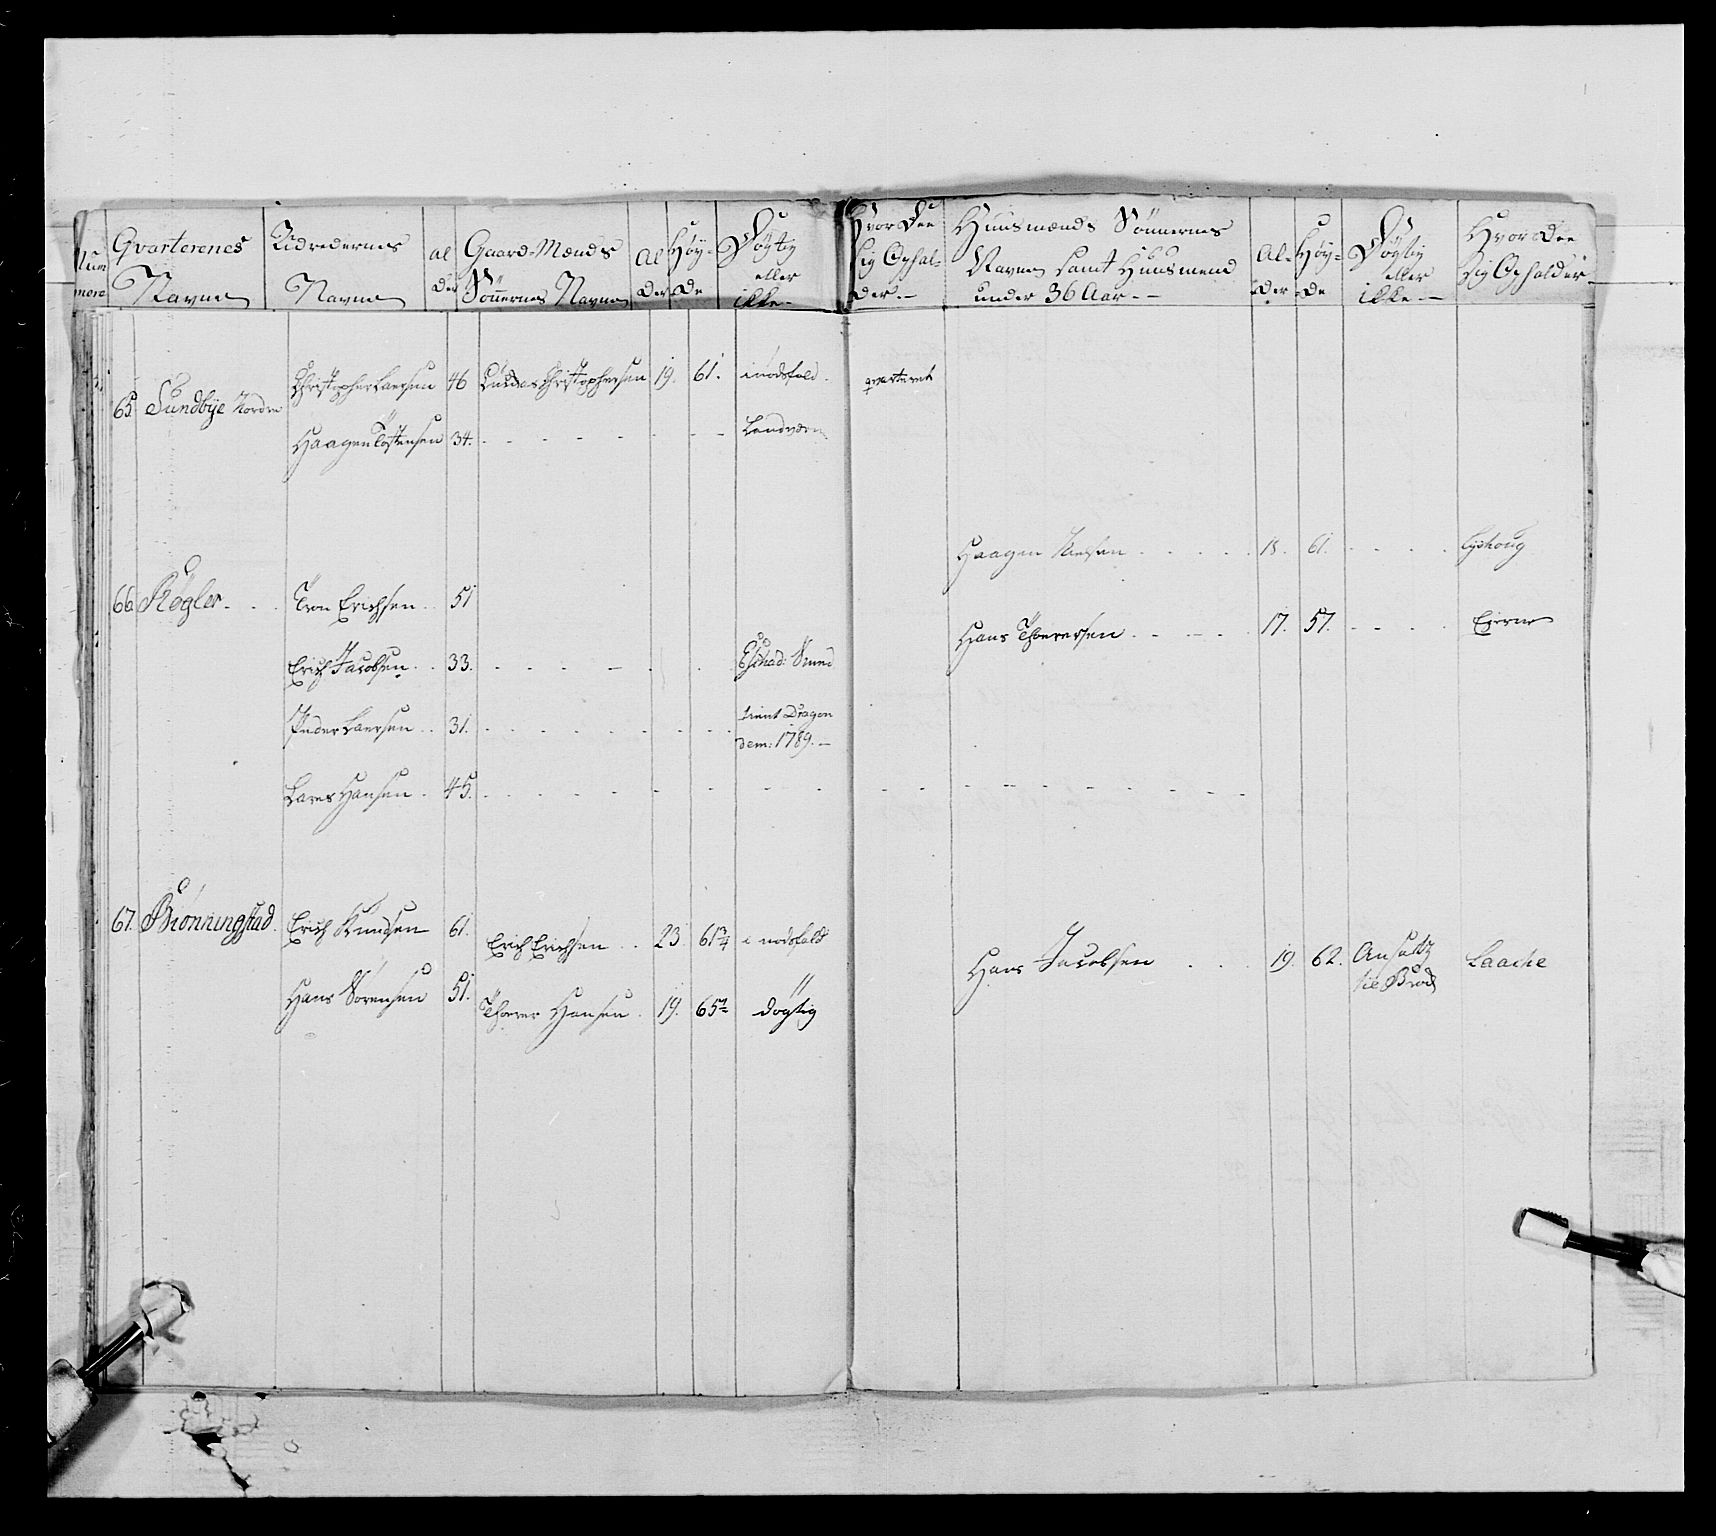 Num
mere
Qvarterenes
Navne
Beboedernes
Navne
Al
der
Gaard-Mænds
Sönnernes Navne
Al
der
Høy-
de
Døgtig
eller
ikke
Hvor dee
sig Ophol-
der.
Huusmænds Sönnernes
Navne samt Huusmænd
under 36 Aar.
Al-
der
Høy-
de
Døgtig
eller
ikke
Hvor dee
sig Opholder
65. Sundbye Nordre Christopher Laersen 46 Christophersen 19. 61. i nødsfald qvarteret
Haagen Tostensen 34. Landværn
Haagen Nielsen 18. 61.
66. Røgler Tron Erichsen 51
Hans Thorersen 17. 57. Eierne
Erich Jacobsen 33.
Peder Laersen 31. tient Dragon
dem: 1789.
Lars Hansen 45.
67. Brönningstad Erich Knudsen 61. Erich Erichsen 23 61 3/4 i nødsfald
Hans Jacobsen 19. 62. Ansatz
til Brok
Laache
Hans Sörensen 51. Thorer Hansen 19. 65 1/2 døgtig